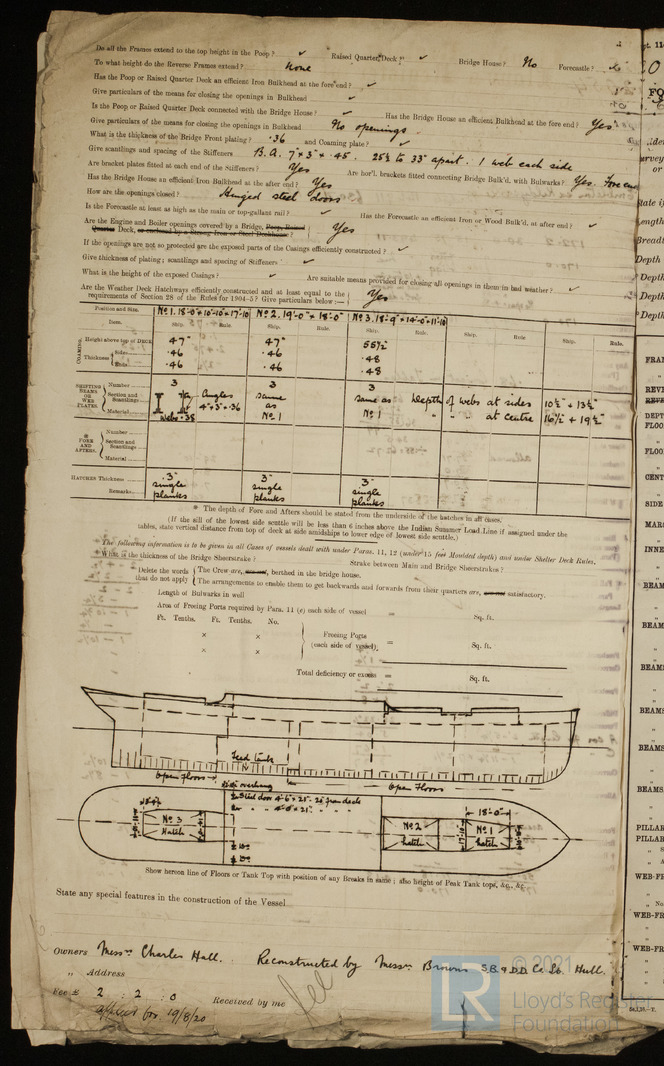 Do all the Frames extend to the top height in the Poop? ✓ Raised Quarter Deck? ✓ Bridge House? No Forecastle?
To what height do the Reverse Frames extend? None
Has the Poop or Raised Quarter Deck an efficient Iron Bulkhead at the fore end? ✓
Give particulars of the means for closing the openings in Bulkhead ✓
Is the Poop or Raised Quarter Deck connected with the Bridge House? ✓ Has the Bridge House an efficient Bulkhead at the fore end? Yes
Give particulars of the means for closing the openings in Bulkhead No openings
What is the thickness of the Bridge Front plating? .36 and Coaming plate? ✓
Give scantlings and spacing of the Stiffeners B.A. 7" × 3" × .45. 25½ to 33" apart. 1 web each side
Are bracket plates fitted at each end of the Stiffeners? Yes Are hor'l. brackets fitted connecting Bridge Bulk'd. with Bulwarks? Yes. Fore end
Has the Bridge House an efficient Iron Bulkhead at the after end? Yes
How are the openings closed? Hinged steel doors
Is the Forecastle at least as high as the main or top-gallant rail? ✓ Has the Forecastle an efficient Iron or Wood Bulk'd. at after end? ✓
Are the Engine and Boiler openings covered by a Bridge, Poop, Raised
Quarter Deck, or enclosed by a Strong Iron or Steel Deckhouse? Yes
If the openings are not so protected are the exposed parts of the Casings efficiently constructed? ✓
Give thickness of plating; scantlings and spacing of Stiffeners? ✓
What is the height of the exposed Casings? ✓ Are suitable means provided for closing all openings in them in bad weather? ✓
Are the Weather Deck Hatchways efficiently constructed and at least equal to the
requirements of Section 28 of the Rules for 1904-5? Give particulars below:— Yes
Position and Size. No 1. 18'-0" × 10'-10" × 17'-10 No 2. 19'-0" × 18'-0" No 3. 18'-9" × 14'-0" × 11'-10
Item. Ship. Rule. Ship. Rule. Ship. Rule. Ship. Rule. Ship. Rule.
COAMING. Height above top of Deck 47" 47" 55½"
Thickness Sides .46 .46 .48
Ends .46 .46 .48
SHIFTING BEAMS OR WEB PLATES. Number 3 3 3
Section and Scantlings Angles 4" × 3" × .36 same as No 1 same as No 1 Depth of webs at sides 10½" + 13½"
Material webs .38 " " " at centre 16½" + 19½"
* FORE AND AFTERS. Number
Section and Scantlings
Material
HATCHES Thickness 3" 3" 3"
Remarks single planks single planks single planks
* The depth of Fore and Afters should be stated from the underside of the hatches in all cases.
(If the sill of the lowest side scuttle will be less than 6 inches above the Indian Summer Load Line if assigned under the
tables, state vertical distance from top of deck at side amidships to lower edge of lowest side scuttle.)
The following information is to be given in all Cases of vessels dealt with under Paras. 11, 12 (under 15 feet Moulded depth) and under Shelter Deck Rules.
What is the thickness of the Bridge Sheerstrake? Strake between Main and Bridge Sheerstrakes?
Delete the words that do not apply { The Crew are, berthed in the bridge house.
The arrangements to enable them to get backwards and forwards from their quarters are, satisfactory.
Length of Bulwarks in well
Area of Freeing Ports required by Para. 11 (e) each side of vessel = Sq. ft.
Ft. Tenths. Ft. Tenths. No.
× × Freeing Ports
× × (each side of vessel), = Sq. ft.
Total deficiency or excess = Sq. ft.
Feed tank
Open Floors → Open Floors
overhang
Steel door 4'-6" × 21"
No 3
Hatch
No 2
hatch
18'-0"
No 1
hatch
Show hereon line of Floors or Tank Top with position of any Breaks in same; also height of Peak Tank tops, &c., &c.
State any special features in the construction of the Vessel
Owners Messrs Charles Hall. Reconstructed by Messrs Browns S.B. & D.D. Co Ld. Hull.
" Address
Fee £ 2 : 2 : 0 Received by me
applied for 19/8/20
© 2021
LR
Lloyd's Register
Foundation